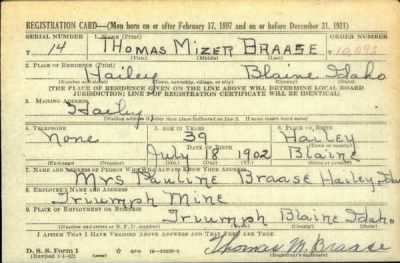 REGISTRATION CARD—(Men born on or after February 17, 1897 and on or before December 31, 1921)
SERIAL NUMBER 1. NAME (Print) ORDER NUMBER
T 14 THOMAS MIZER BRAASE T10,092
(First) (Middle) (Last)
2. PLACE OF RESIDENCE (Print)
Hailey Blaine Idaho
(Number and street) (Town, township, village, or city) (County) (State)
[THE PLACE OF RESIDENCE GIVEN ON THE LINE ABOVE WILL DETERMINE LOCAL BOARD
JURISDICTION; LINE 2 OF REGISTRATION CERTIFICATE WILL BE IDENTICAL]
3. MAILING ADDRESS
Hailey
[Mailing address if other than place indicated on line 2. If same insert word same]
4. TELEPHONE 5. AGE IN YEARS 6. PLACE OF BIRTH
None 39 Hailey
DATE OF BIRTH (Town or county)
July 18 1902 Blaine
(Exchange) (Number) (Mo.) (Day) (Yr.) (State or country)
7. NAME AND ADDRESS OF PERSON WHO WILL ALWAYS KNOW YOUR ADDRESS
Mrs Pauline Braase Hailey Ida
8. EMPLOYER'S NAME AND ADDRESS
Triumph Mine
9. PLACE OF EMPLOYMENT OR BUSINESS
Triumph Blaine Idaho
(Number and street or R. F. D. number) (Town) (County) (State)
I AFFIRM THAT I HAVE VERIFIED ABOVE ANSWERS AND THAT THEY ARE TRUE.
D. S. S. Form 1
(Revised 1-1-42) (over)
Thomas M. Braase
(Registrant's signature)